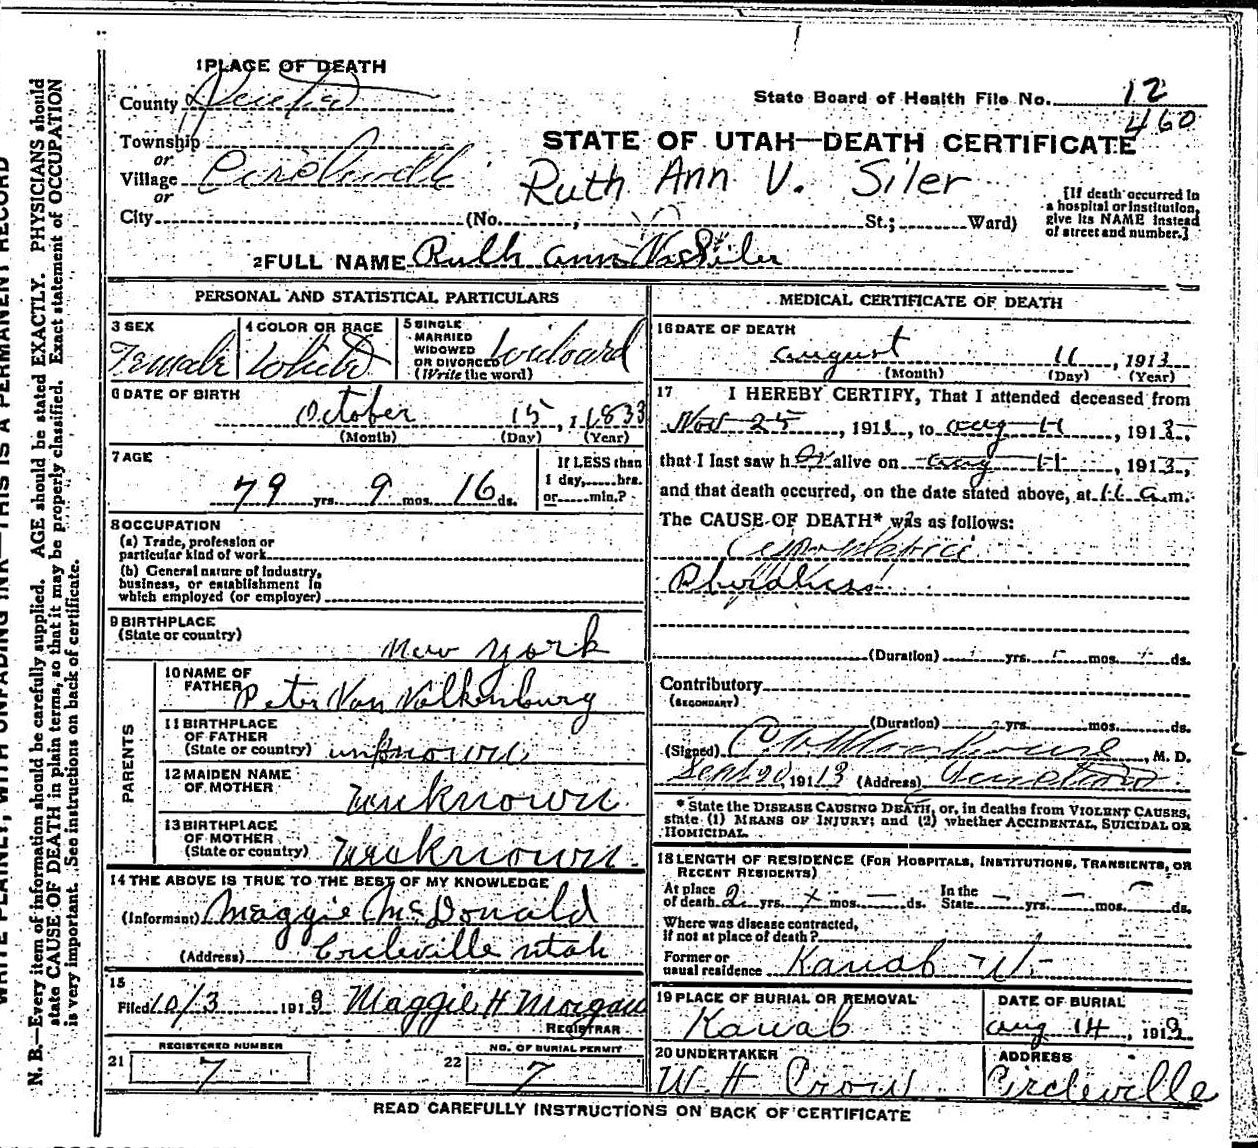 1 PLACE OF DEATH
County
State Board of Health File No. 12
460
Township
STATE OF UTAH—DEATH CERTIFICATE
or
Village Circleville
Ruth Ann V. Siler
or
City (No. , St.; Ward)
[If death occurred in
a hospital or institution,
give its NAME instead
of street and number.]
2 FULL NAME Ruth Ann V. Siler
PERSONAL AND STATISTICAL PARTICULARS
3 SEX
Female
4 COLOR OR RACE
White
5 SINGLE
MARRIED
WIDOWED
OR DIVORCED
(Write the word)
Widoard
6 DATE OF BIRTH
October 15, 1833
(Month) (Day) (Year)
7 AGE
79 yrs. 9 mos. 16 ds.
If LESS than
1 day, hrs.
or min.?
8 OCCUPATION
(a) Trade, profession or
particular kind of work
(b) General nature of industry,
business, or establishment in
which employed (or employer)
9 BIRTHPLACE
(State or country)
New York
PARENTS
10 NAME OF
FATHER
Peter Van Valkenburg
11 BIRTHPLACE
OF FATHER
(State or country) unknown
12 MAIDEN NAME
OF MOTHER
unknown
13 BIRTHPLACE
OF MOTHER
(State or country) unknown.
14 THE ABOVE IS TRUE TO THE BEST OF MY KNOWLEDGE
(Informant) Maggie McDonald
(Address) Circleville Utah
15
Filed 10/3 1913 Maggie H Morgan
REGISTRAR
REGISTERED NUMBER
21 7
NO. OF BURIAL PERMIT
22 7
MEDICAL CERTIFICATE OF DEATH
16 DATE OF DEATH
August 11, 1913
(Month) (Day) (Year)
17 I HEREBY CERTIFY, That I attended deceased from
Nov 25, 1911, to Aug 11, 1913,
that I last saw her alive on Aug 11, 1913,
and that death occurred, on the date stated above, at 11 a.m.
The CAUSE OF DEATH* was as follows:
(Duration) yrs. mos. ds.
Contributory
(SECONDARY)
(Duration) yrs. mos. ds.
(Signed) M. D.
Sept 20, 1913 (Address)
* State the DISEASE CAUSING DEATH, or, in deaths from VIOLENT CAUSES,
state (1) MEANS OF INJURY; and (2) whether ACCIDENTAL, SUICIDAL OR
HOMICIDAL.
18 LENGTH OF RESIDENCE (FOR HOSPITALS, INSTITUTIONS, TRANSIENTS, OR
RECENT RESIDENTS)
At place
of death 2 yrs. mos. ds.
In the
State yrs. mos. ds.
Where was disease contracted,
if not at place of death?
Former or
usual residence Kanab U.
19 PLACE OF BURIAL OR REMOVAL
Kanab
DATE OF BURIAL
Aug 14, 1913
20 UNDERTAKER
W H Crow
ADDRESS
Circleville
READ CAREFULLY INSTRUCTIONS ON BACK OF CERTIFICATE
WRITE PLAINLY, WITH UNFADING INK—THIS IS A PERMANENT RECORD
N. B.—Every item of information should be carefully supplied. AGE should be stated EXACTLY. PHYSICIANS should
state CAUSE OF DEATH in plain terms, so that it may be properly classified. Exact statement of OCCUPATION
is very important. See instructions on back of certificate.